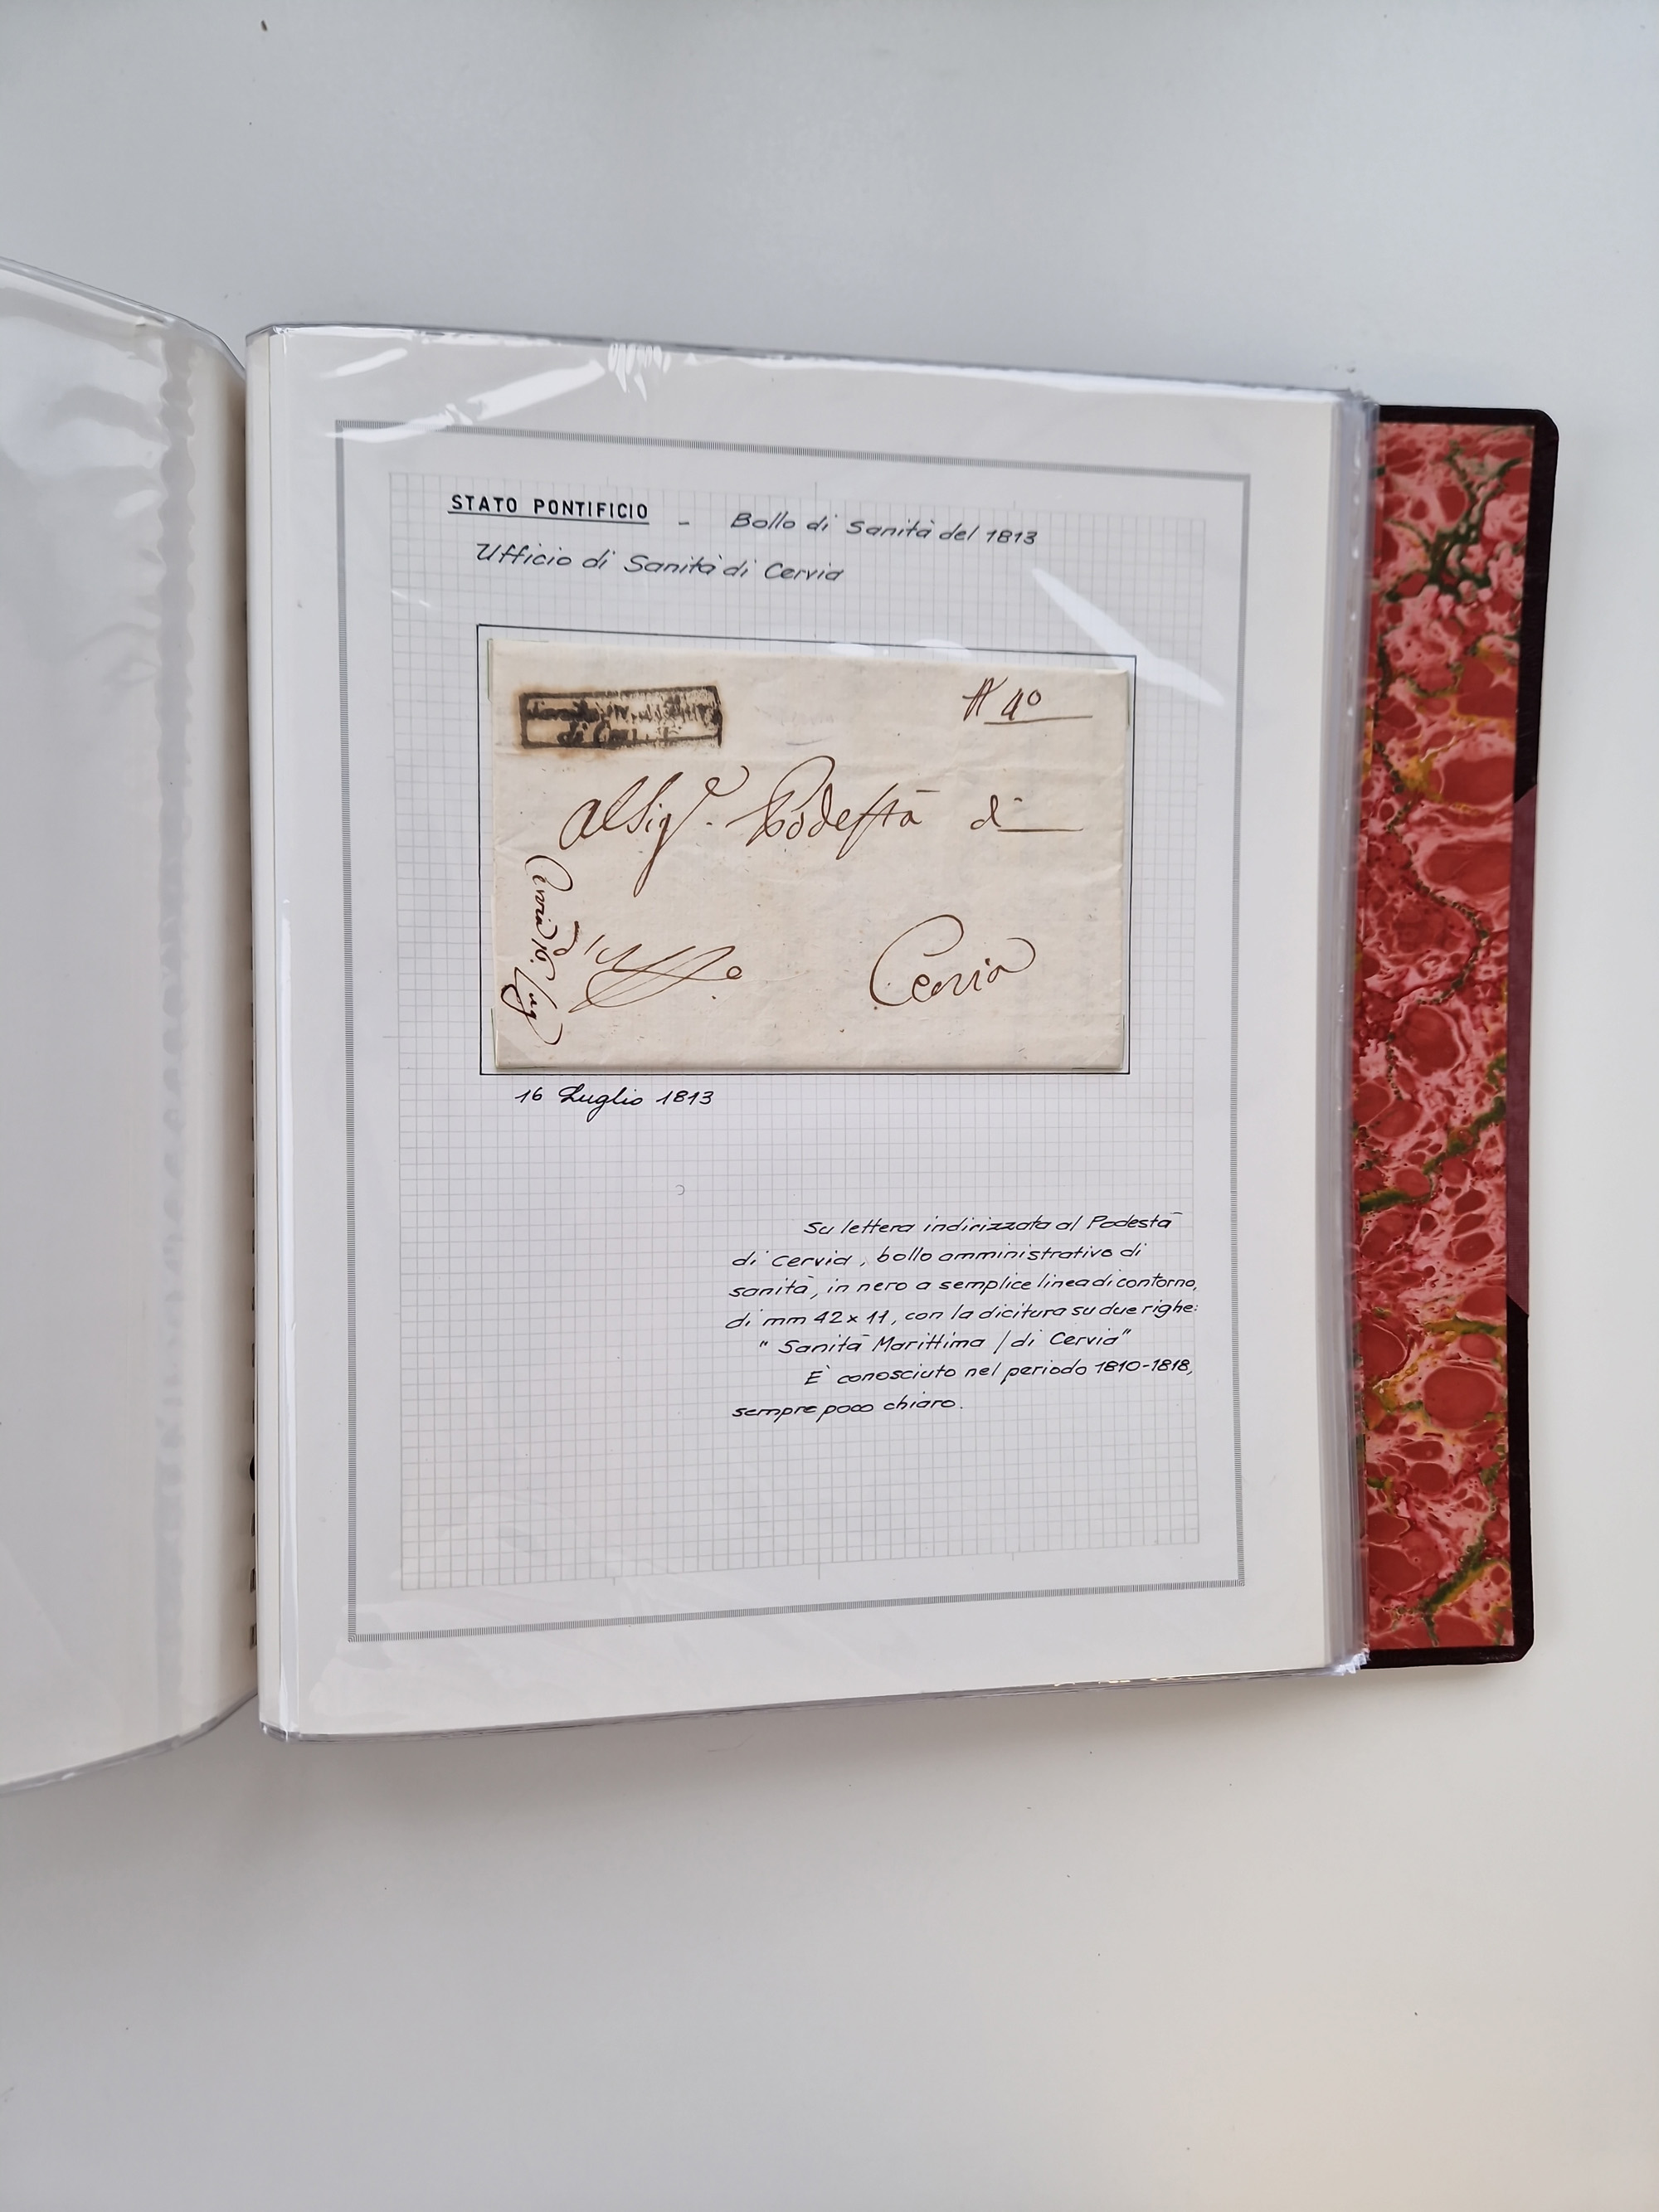 STATO PONTIFICIO - Bollo di Sanità del 1813
Ufficio di Sanità di Cervia
di
N 40
Al Sig.e Podestà di
Cervia 16. Lug
Uff.o
Cervia
16 Luglio 1813
Su lettera indirizzata al Podestà
di Cervia, bollo amministrativo di
sanità, in nero a semplice linea di contorno,
di mm 42x11, con la dicitura su due righe:
"Sanità Marittima / di Cervia"
E' conosciuto nel periodo 1810-1818,
sempre poco chiaro.